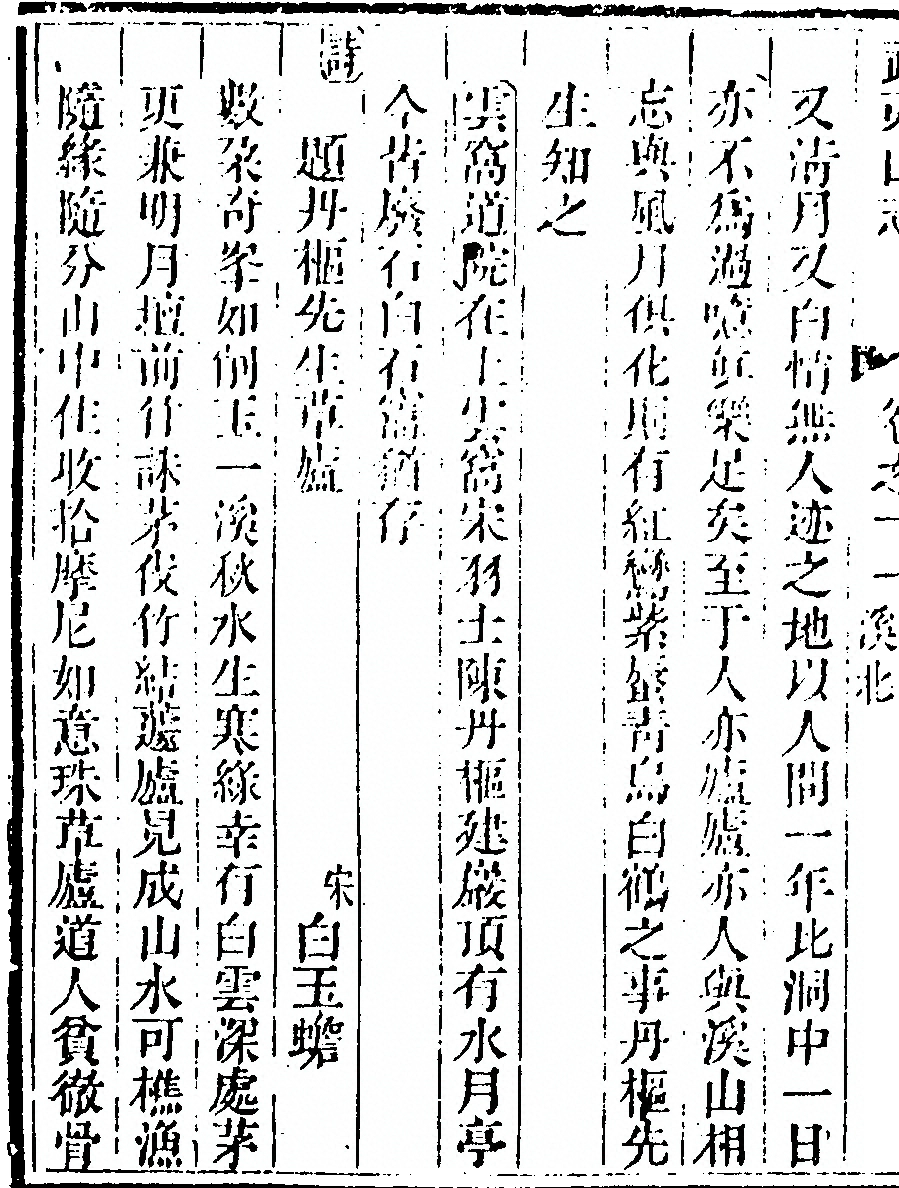 武夷山志 卷之一 一溪北
又清月又白情無人迹之地以人間一年比洞中一日
亦不為過噫虹樂足矣至于人亦廬廬亦人與溪山相
忘與風月俱化則有紅鸞紫鳳青鳥白鶴之事丹樞先
生知之
雲窩道院在上生窩宋羽士陳丹樞建巖頂有水月亭
今皆廢石白石窩猶存
詩
題丹樞先生草廬 宋白玉蟾
數朶奇峯如削玉一溪秋水生寒綠幸有白雲深處茅
更兼明月壇前竹誅茅伐竹結蘧廬見成山水可樵漁
隨緣隨分山中住收拾摩尼如意珠草廬道人貧徹骨